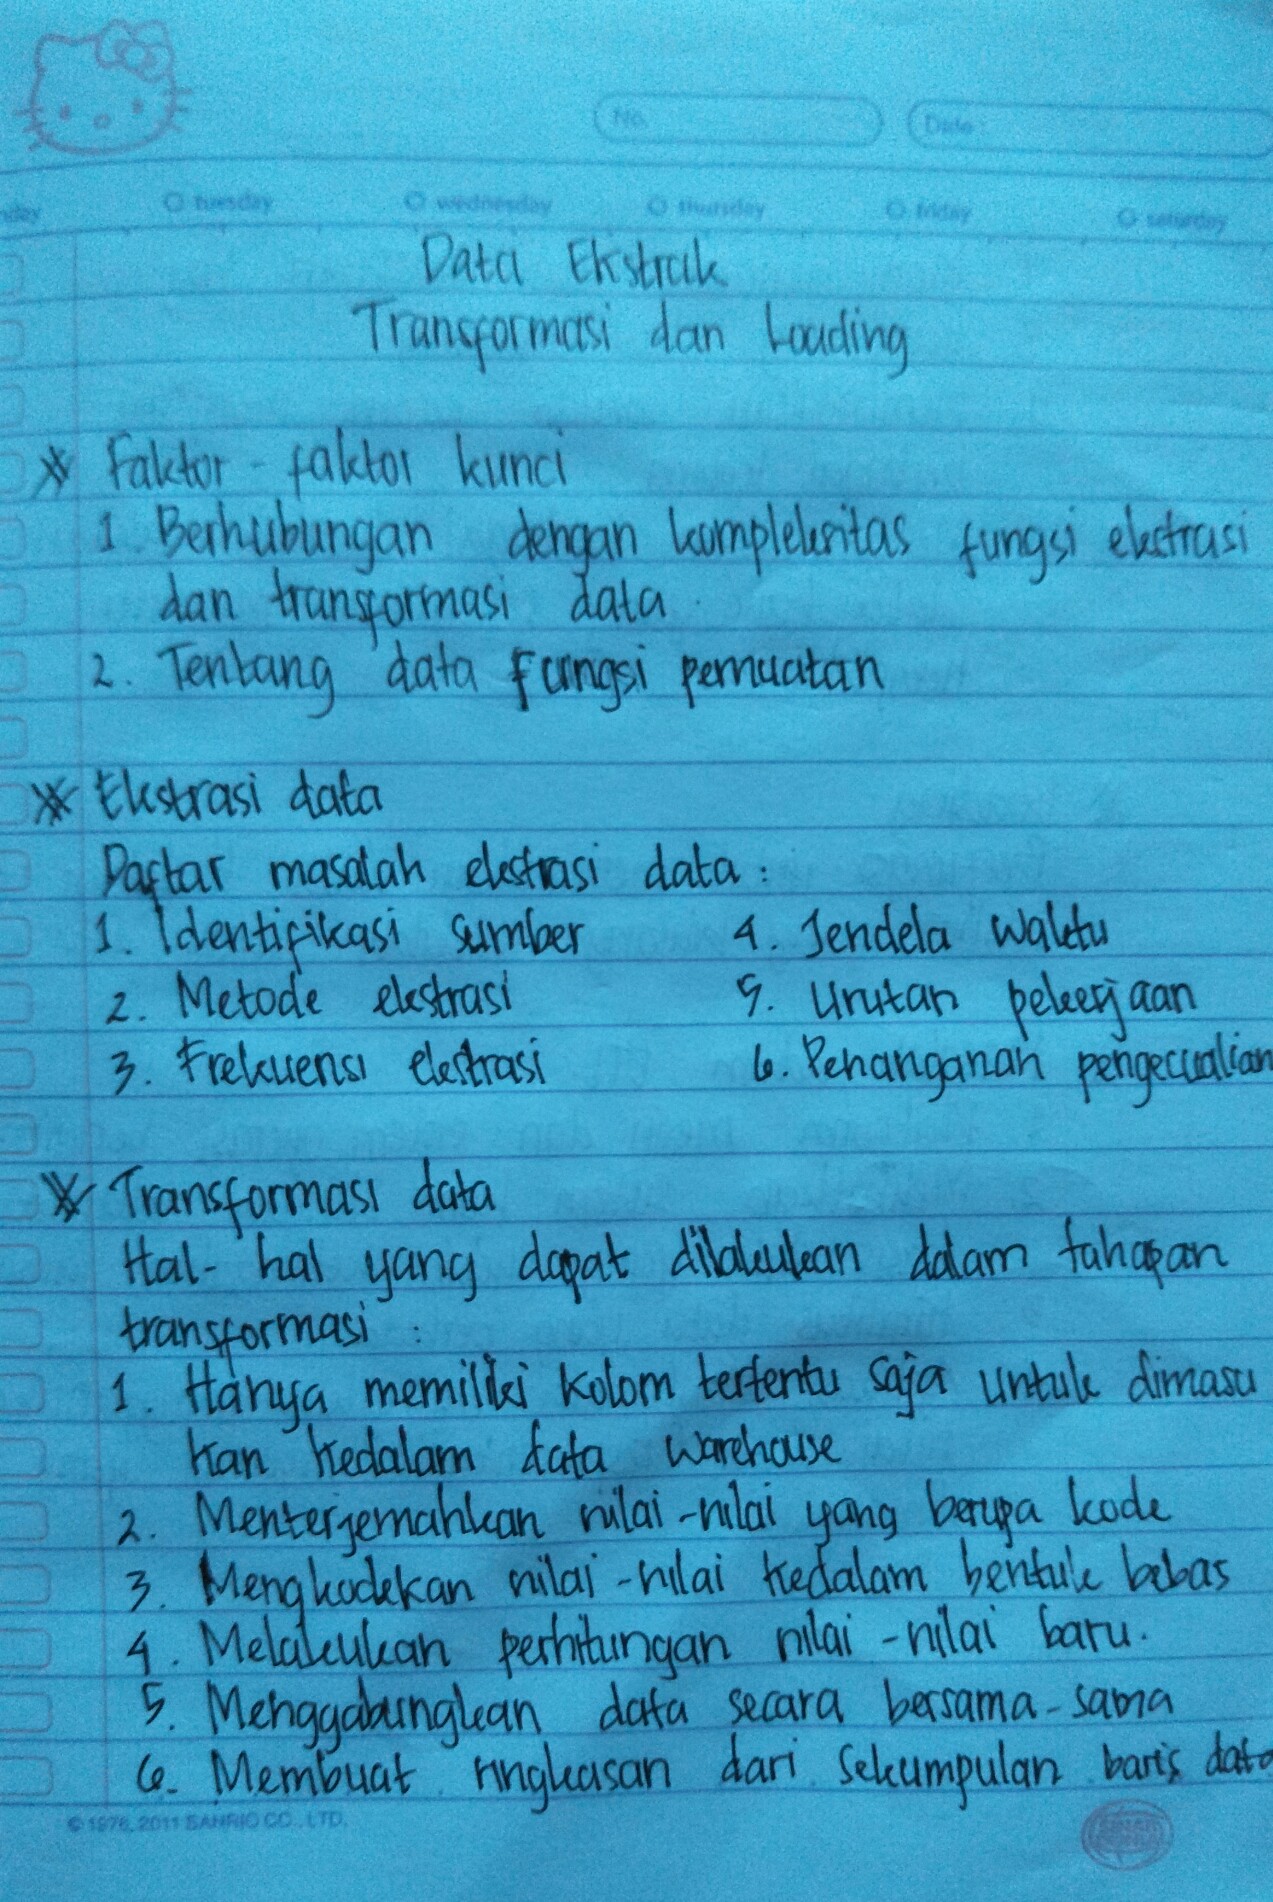 No.
Date :
nday
tuesday
wednesday
thursday
friday
saturday
Data Ekstrak
Transformasi dan Loading
Faktor - faktor kunci
1. Berhubungan dengan kompleksitas fungsi ekstrasi
dan transformasi data.
2. Tentang data Fungsi pemuatan
Ekstrasi data
Daftar masalah ekstrasi data :
1. Identifikasi sumber
2. Metode ekstrasi
3. Frekuensi ekstrasi
4. Jendela waktu
5. Urutan pekerjaan
6. Penanganan pengecualian
Transformasi data
Hal - hal yang dapat dilakukan dalam tahapan
transformasi :
1. Hanya memiliki kolom tertentu saja untuk dimasu
kan kedalam data warehouse
2. Menterjemahkan nilai - nilai yang berupa kode
3. Mengkodekan nilai - nilai kedalam bentuk bebas
4. Melakukan perhitungan nilai - nilai baru.
5. Menggabungkan data secara bersama - sama
6. Membuat ringkasan dari sekumpulan baris data
© 1976, 2011 SANRIO CO., LTD.